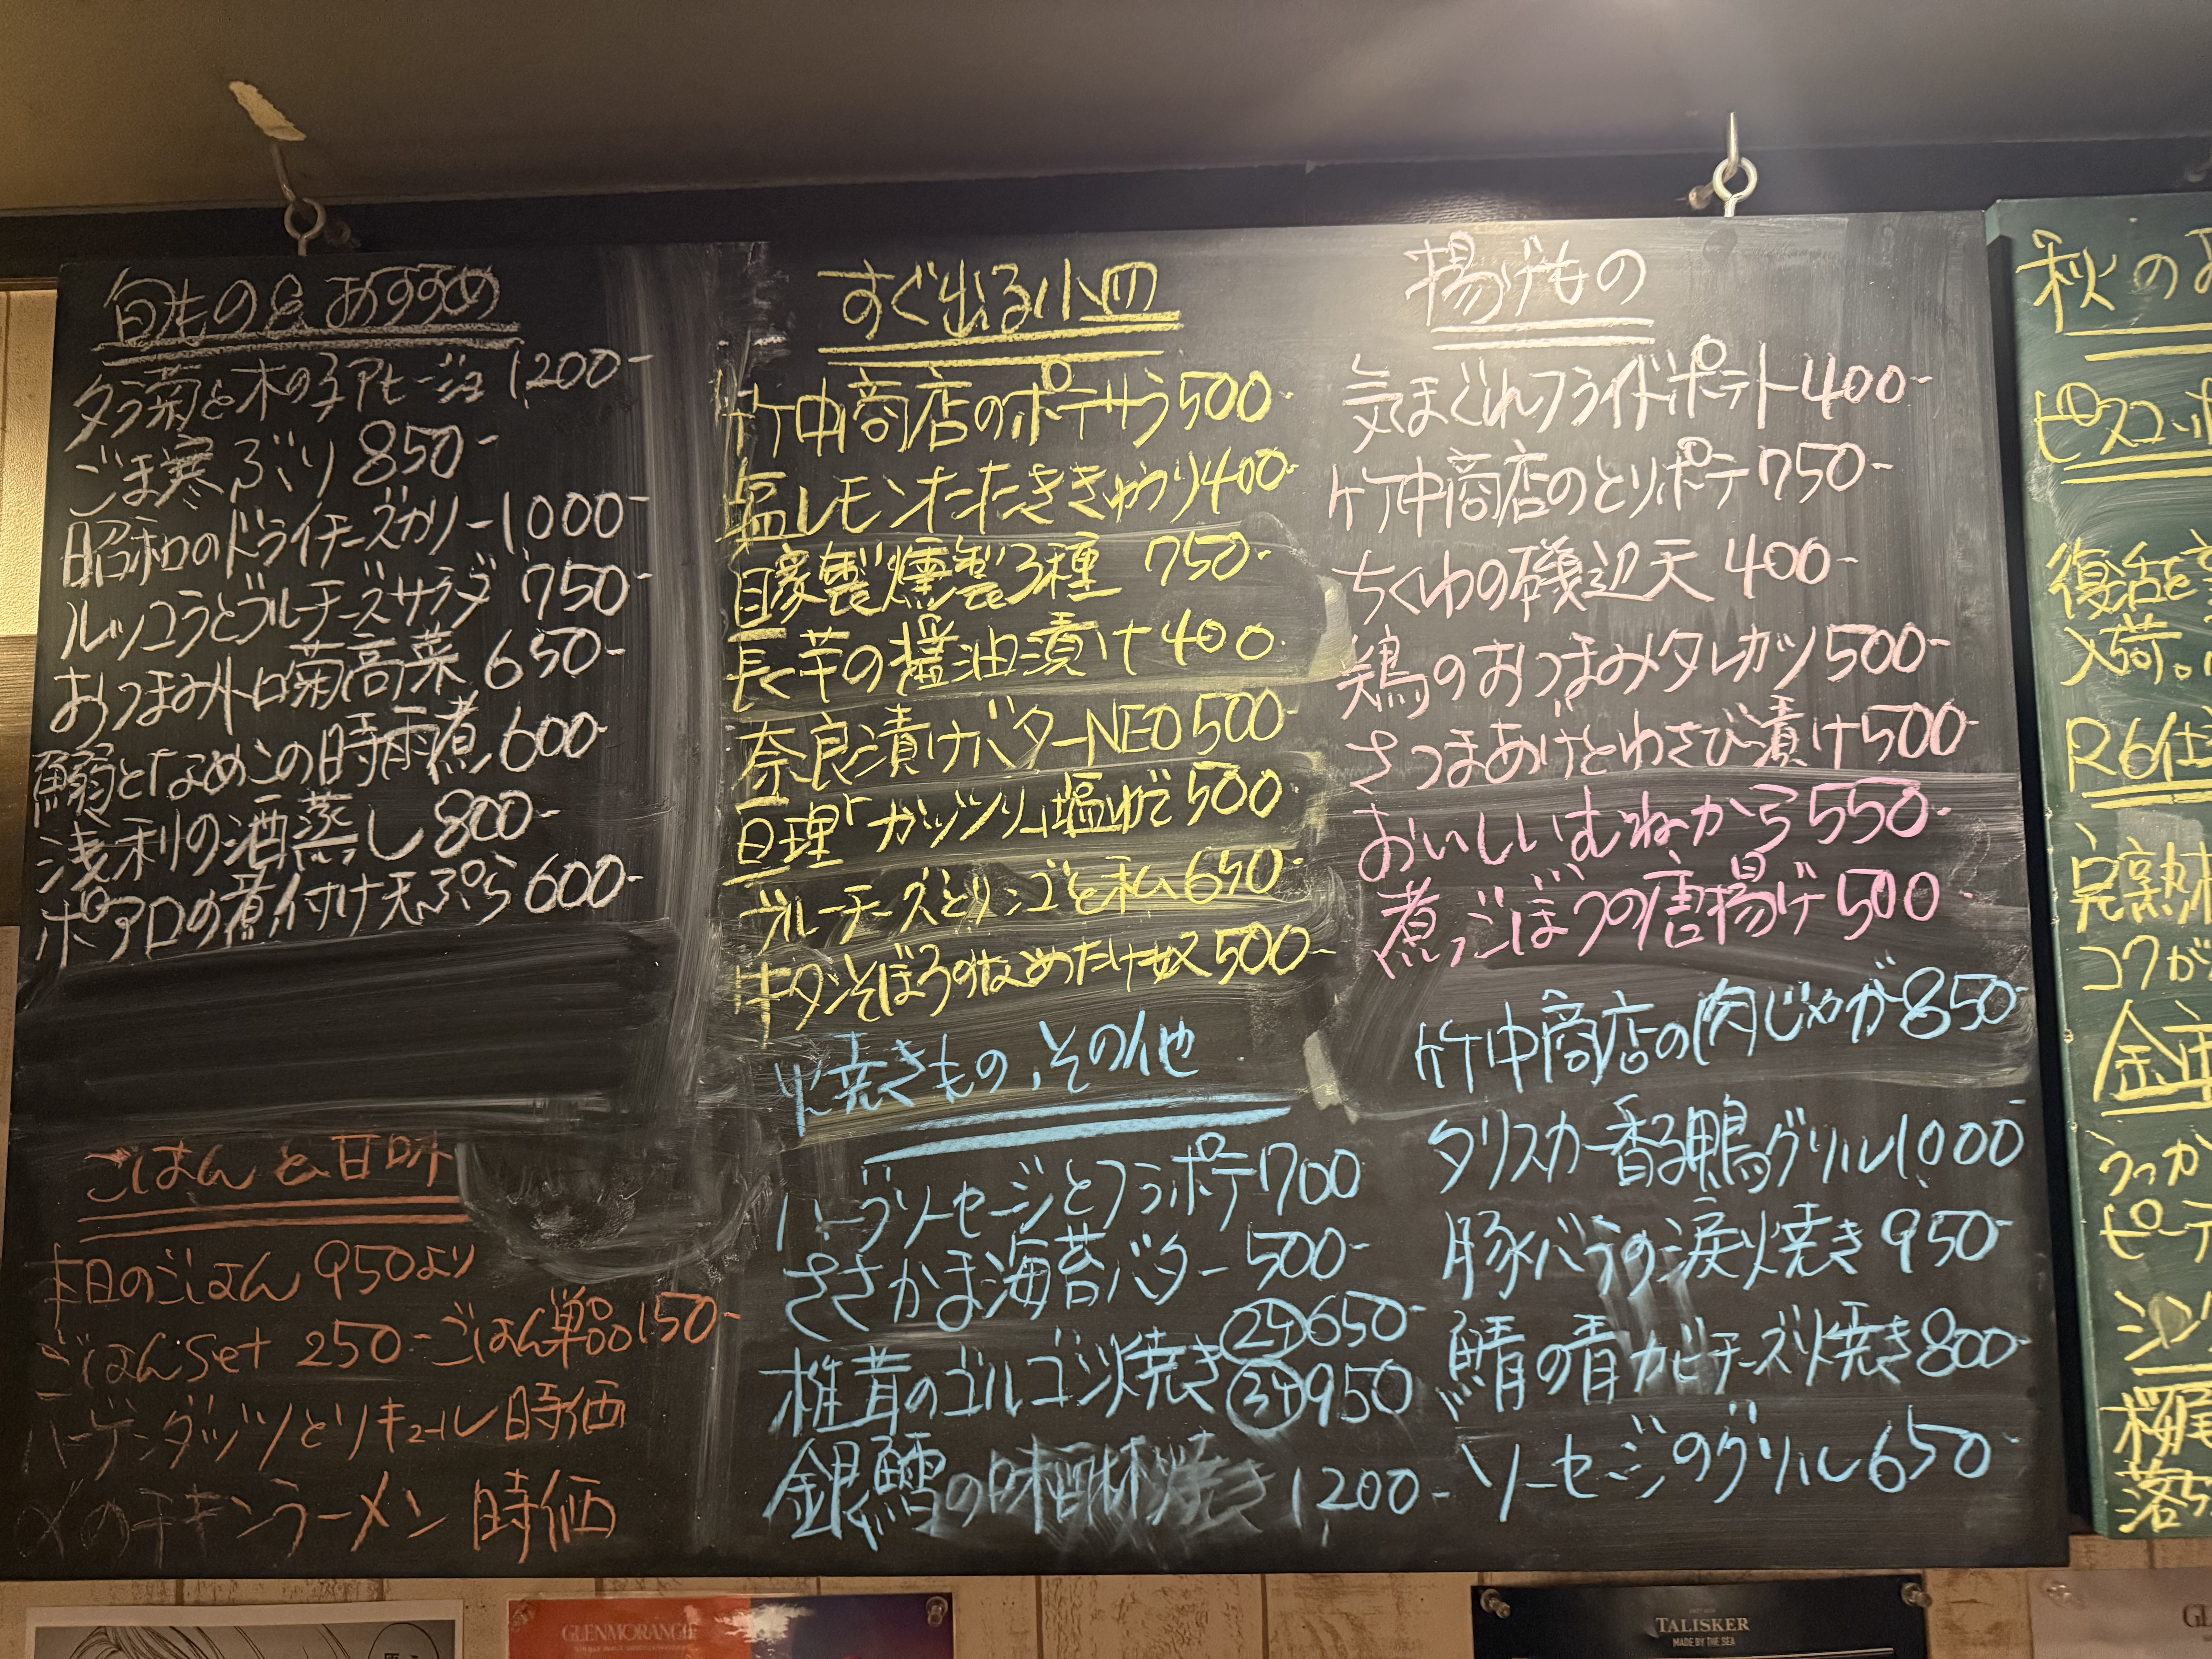 旬もの&おすすめ
タラ菊と木の子アヒージョ 1200-
ごま寒ぶり 850-
昭和のドライチーズカリー 1000-
ルッコラとブルーチーズサラダ 750-
おつまみトロ菊高菜 650-
鰯となめこの時雨煮 600-
浅利の酒蒸し 800-
ポアロの煮付け天ぷら 600-
ごはんと甘味
本日のごはん 950より
ごはんset 250- ごはん単品150-
ハーゲンダッツとリキュール 時価
〆のチキンラーメン 時価
すぐ出る小皿
竹中商店のポテサラ 500-
塩レモンたたききゅうり 400-
自家製燻製3種 750-
長芋の醤油漬け 400
奈良漬けバターNEO 500-
亘理「ガッツリ」塩ゆで 500
ブルーチーズとリンゴと私 650-
牛タンそぼろのなめたけ奴 500-
焼きもの、その他
ハーブソーセージとフラポテ 700
ささかま海苔バター 500-
椎茸のゴルゴンゾ焼き ②ケ 650-
③ケ 950
銀鱈の味醂焼き 1200-
揚げもの
気まぐれフライドポテト 400-
竹中商店のとりポテ 750-
ちくわの磯辺天 400-
鶏のおつまみタレカツ 500-
さつまあげとわさび漬け 500-
おいしいむねから 550-
煮ごぼうの唐揚げ 500
竹中商店の肉じゃが 850-
タリスカー香る鴨グリル 1000
豚バラの涙焼き 950-
鯖の青カビチーズ焼き 800-
ソーセージのグリル 650
秋の
復活
入荷。
R6
完熟
コクが
うっか
落ち
GLENMORANGIE
TALISKER
MADE BY THE SEA